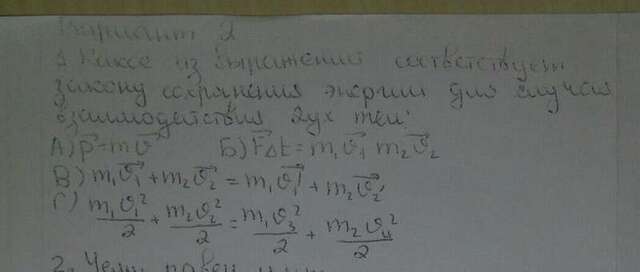 Вариант 2
1. Какое из выражений соответствует
закону сохранения энергии для случая
взаимодействия 2ух тел:
А) p⃗=mϑ⃗ Б) F⃗Δt = m₁ϑ⃗₁ m₂ϑ⃗₂
В) m₁ϑ⃗₁ + m₂ϑ⃗₂ = m₁ϑ⃗₁' + m₂ϑ⃗₂'
Г) m₁ϑ₁²/2 + m₂ϑ₂²/2 = m₁ϑ₃²/2 + m₂ϑ₄²/2
2. Чему равен